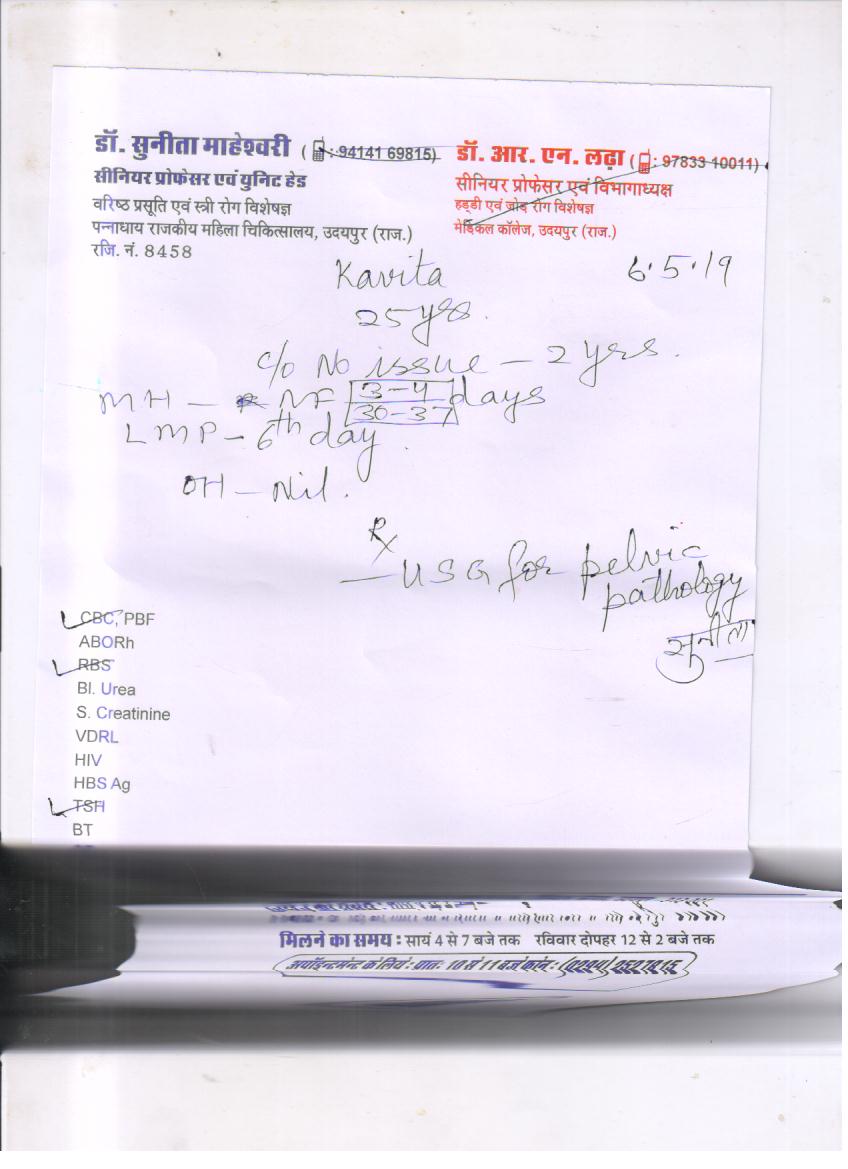 डॉ. सुनीता माहेश्वरी ( : 94141 69815)
सीनियर प्रोफेसर एवं युनिट हेड
वरिष्ठ प्रसूति एवं स्त्री रोग विशेषज्ञ
पन्नाधाय राजकीय महिला चिकित्सालय, उदयपुर (राज.)
रजि. नं. 8458
डॉ. आर. एन. लढ़ा ( : 97833 10011)
सीनियर प्रोफेसर एवं विभागाध्यक्ष
हड्डी एवं जोड़ रोग विशेषज्ञ
मेडिकल कॉलेज, उदयपुर (राज.)
Kavita
6.5.19
25 yrs.
c/o No issue - 2 yrs.
MH - NF 3-4 days
30-37
LMP - 6th day.
OH - Nil.
Rx
- USG for pelvic
pathology
सुनीता
CBC, PBF
ABORh
RBS
Bl. Urea
S. Creatinine
VDRL
HIV
HBS Ag
TSH
BT
मिलने का समय : सायं 4 से 7 बजे तक रविवार दोपहर 12 से 2 बजे तक
अपॉइन्टमेन्ट के लिये : प्रातः 10 से 11 बजे फोन : (0294) 2527815